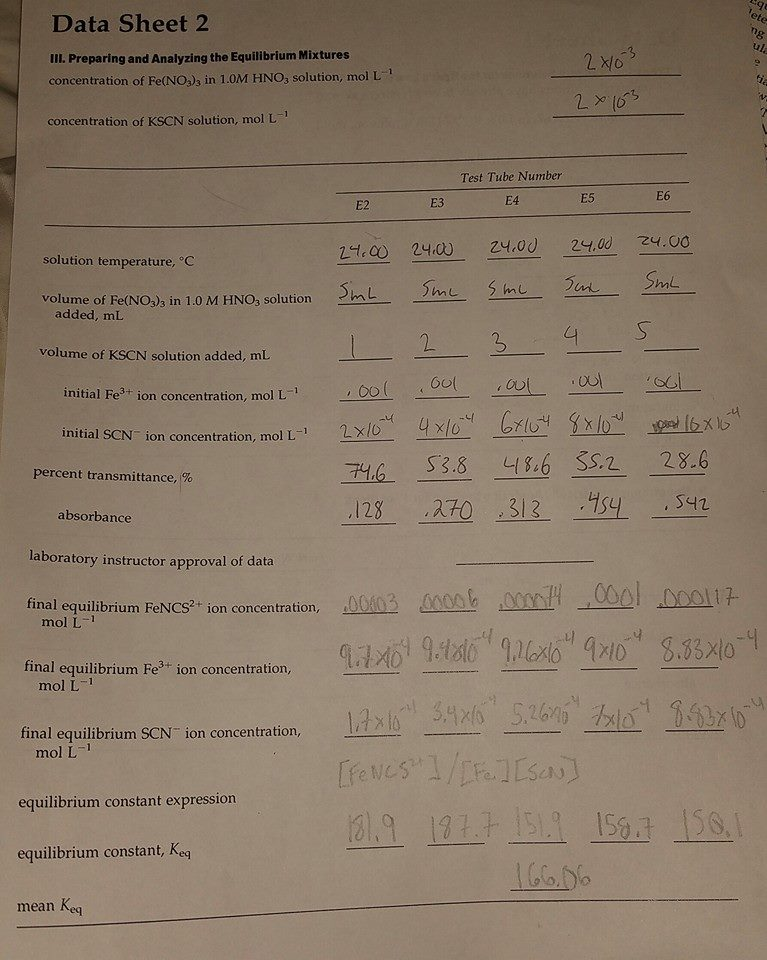 Data Sheet 2
III. Preparing and Analyzing the Equilibrium Mixtures
concentration of Fe(NO₃)₃ in 1.0M HNO₃ solution, mol L⁻¹ 2 x10⁻³
concentration of KSCN solution, mol L⁻¹ 2 × 10⁻³
Test Tube Number
E2 E3 E4 E5 E6
solution temperature, °C 24.00 24.00 24.00 24.00 24.00
volume of Fe(NO₃)₃ in 1.0 M HNO₃ solution 5mL 5mL 5mL 5mL 5mL
added, mL
volume of KSCN solution added, mL 1 2 3 4 5
initial Fe³⁺ ion concentration, mol L⁻¹ .001 .001 .001 .001 .001
initial SCN⁻ ion concentration, mol L⁻¹ 2x10⁻⁴ 4x10⁻⁴ 6x10⁻⁴ 8x10⁻⁴ 10x10⁻⁴
percent transmittance, % 74.6 53.8 48.6 35.2 28.6
absorbance .128 .270 .313 .454 .542
laboratory instructor approval of data
final equilibrium FeNCS²⁺ ion concentration, .00003 .00006 .000074 .0001 .000117
mol L⁻¹
final equilibrium Fe³⁺ ion concentration, 9.7x10⁻⁴ 9.4x10⁻⁴ 9.26x10⁻⁴ 9x10⁻⁴ 8.83x10⁻⁴
mol L⁻¹
final equilibrium SCN⁻ ion concentration, 1.7x10⁻⁴ 3.4x10⁻⁴ 5.26x10⁻⁴ 7x10⁻⁴ 8.83x10⁻⁴
mol L⁻¹
[FeNCS²⁺]/[Fe][SCN]
equilibrium constant expression
equilibrium constant, Keq 181.9 187.7 151.9 158.7 150.1
mean Keq 166.06